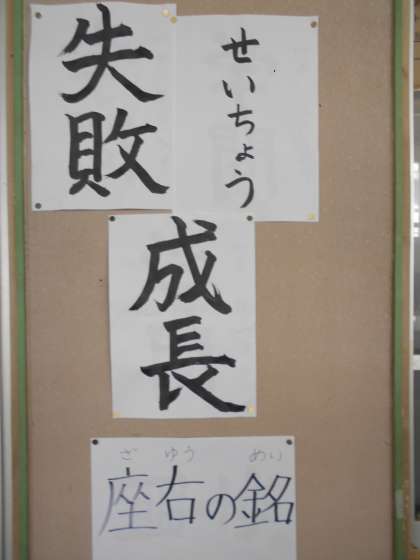 失敗
せいちょう
成長
ざ ゆう めい
座右の銘